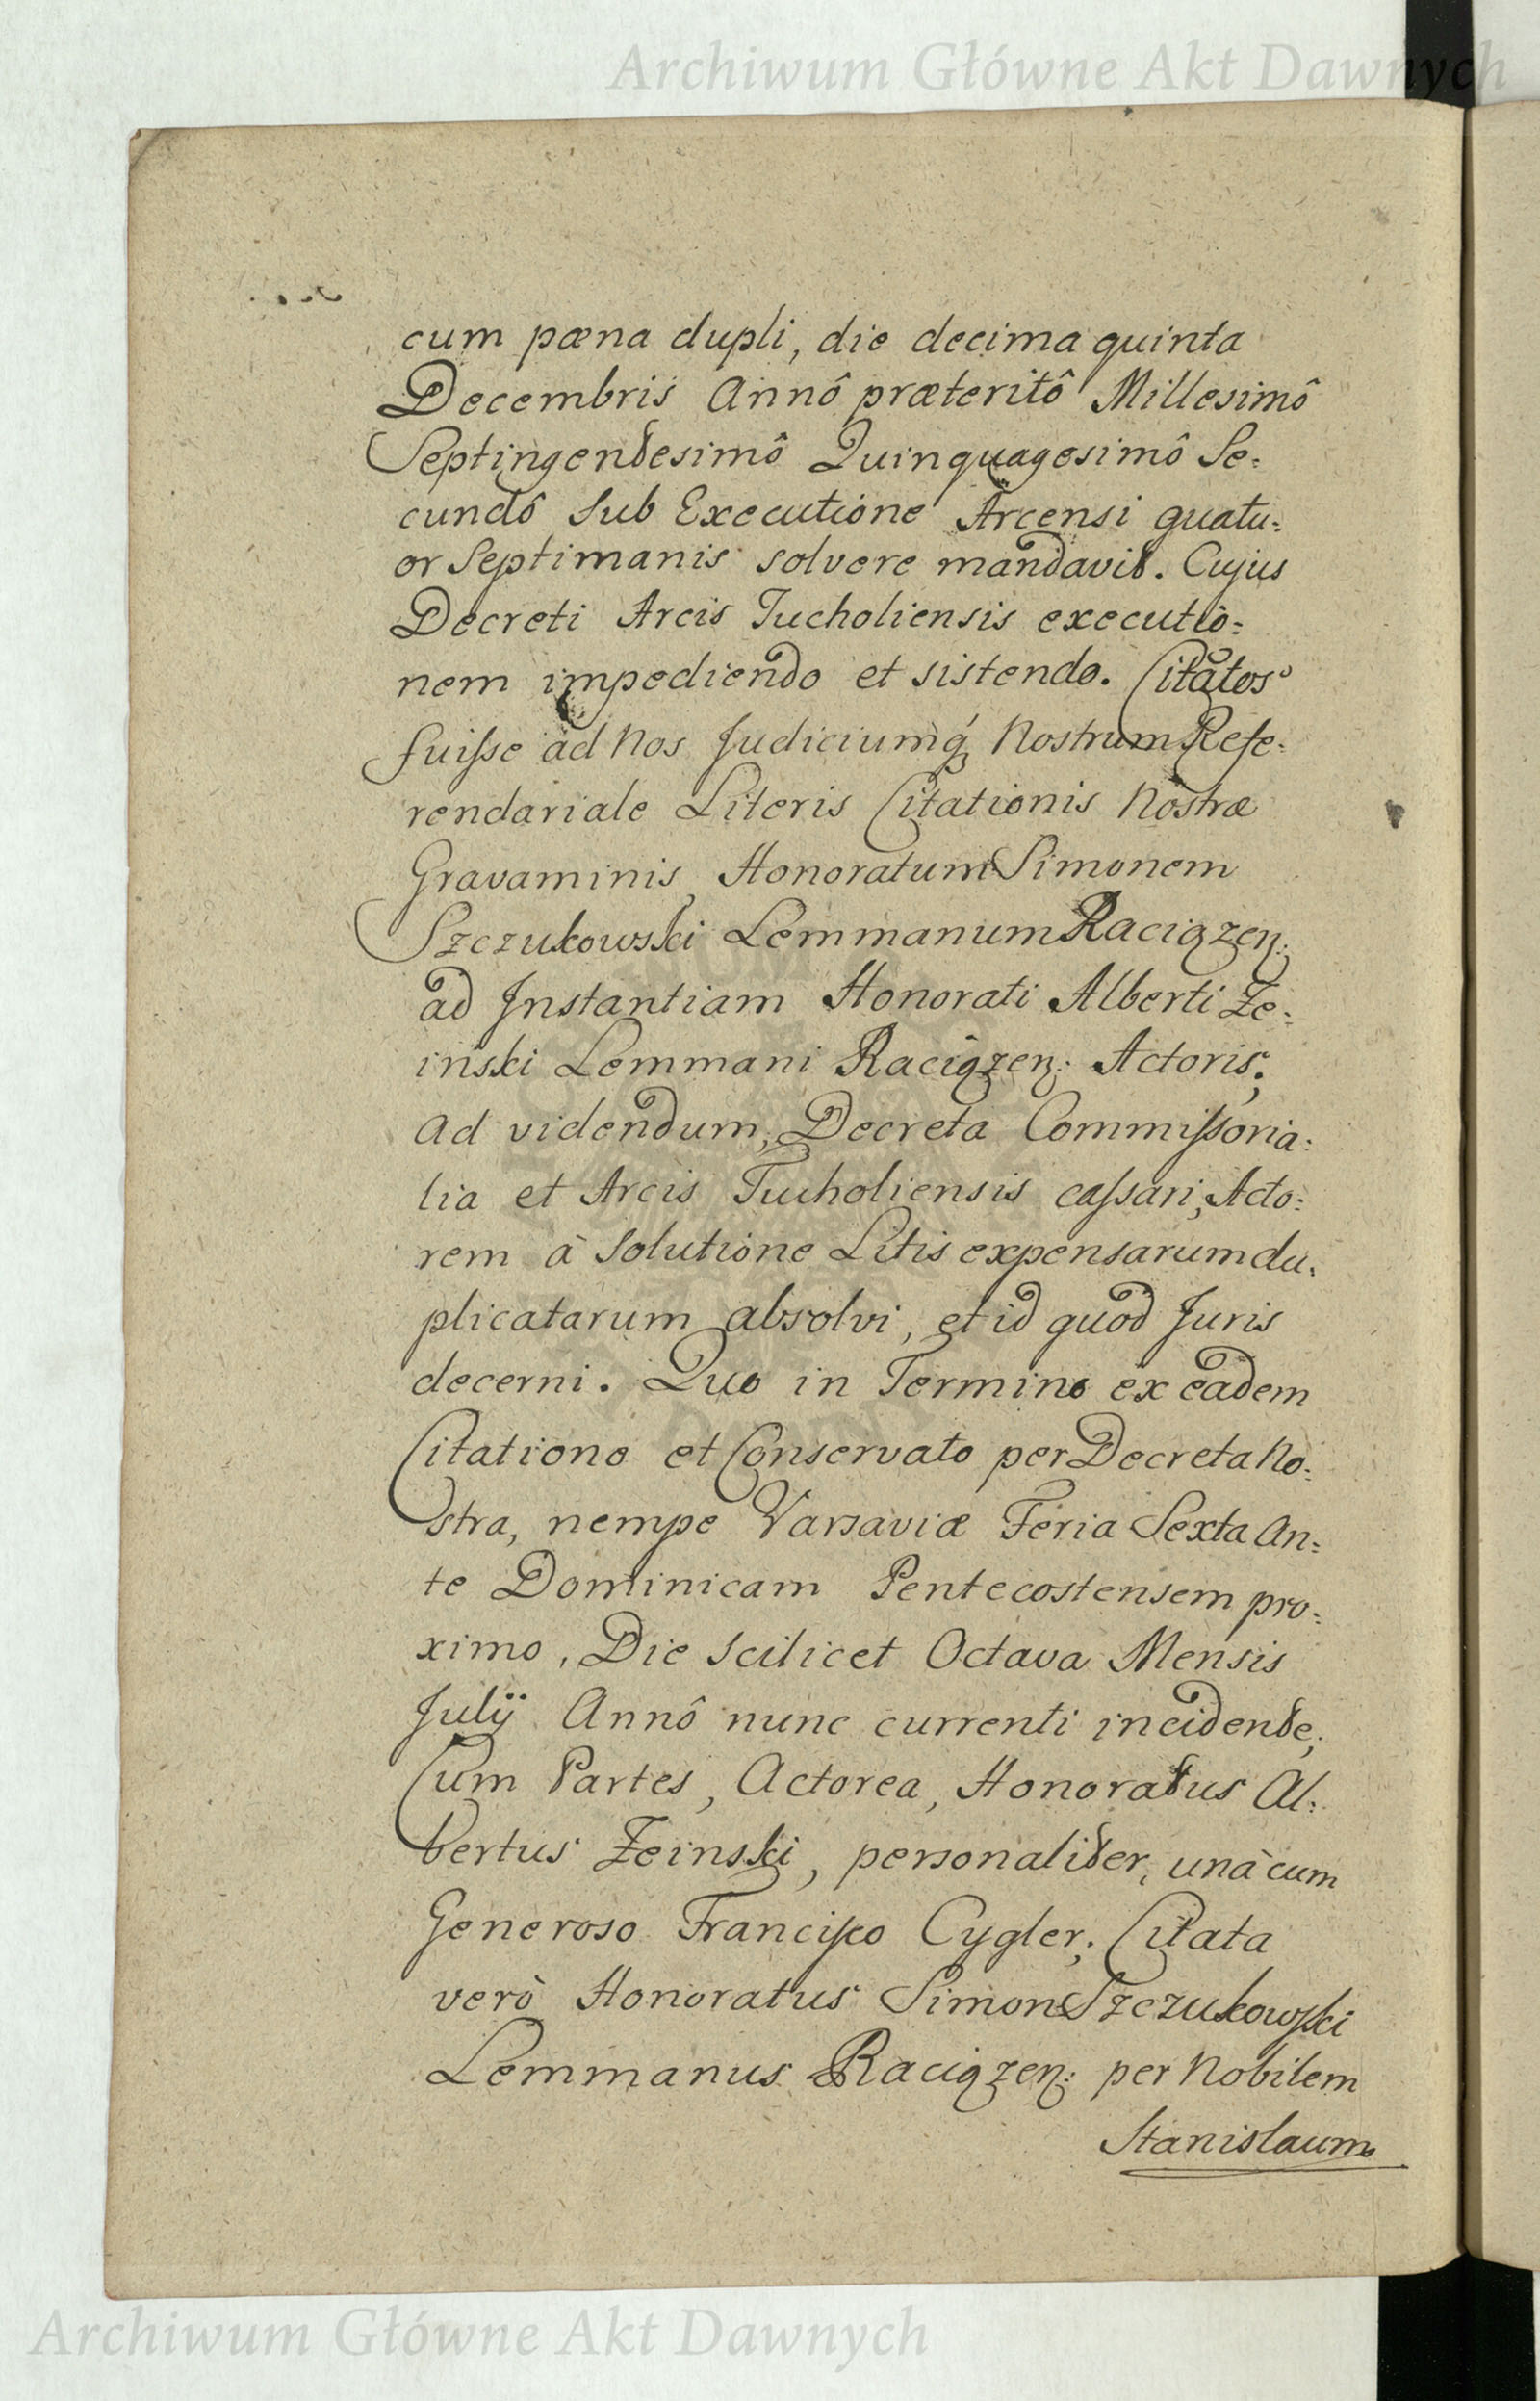 Archiwum Główne Akt Dawnych
cum pæna dupli, die decima quinta
Decembris Annô præteritô Millesimô
Septingentesimô Quinquagesimô Se=
cundô sub Executione Arcensi quatu=
or Septimanis solvere mandavit. Cujus
Decreti Arcis Tucholiensis executio=
nem impediendo et sistendo. Citatos
fuisse ad Nos Judiciumq́ Nostrum Refe=
rendariale Literis Citationis Nostræ
Gravaminis, Honoratum Simonem
Szczukowski Lemmanum Raciązen:
ad Instantiam Honorati Alberti Ze=
inski Lemmani Raciązen: Actoris;
ad videndum, Decreta Commissoria=
lia et Arcis Tucholiensis cassari, Acto=
rem à Solutione Litis expensarum du=
plicatarum absolvi, et id quod Juris
decerni. Quo in Termino ex eadem
Citatione et Conservato per Decreta No=
stra, nempe Varsaviæ Feria Sexta An=
te Dominicam Pentecostensem pro=
ximo, Die scilicet Octava Mensis
Julÿ Annô nunc currenti incidente;
Cum Partes, Actorea, Honoratus Al=
bertus Zeinski, personaliter, unà cum
Generoso Francisco Cygler; Citata
verò Honoratus Simon Szczukowski
Lemmanus Raciązen: per Nobilem
Stanislaum
Archiwum Główne Akt Dawnych